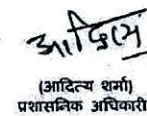 (आदित्य शर्मा)
प्रशासनिक अधिकारी